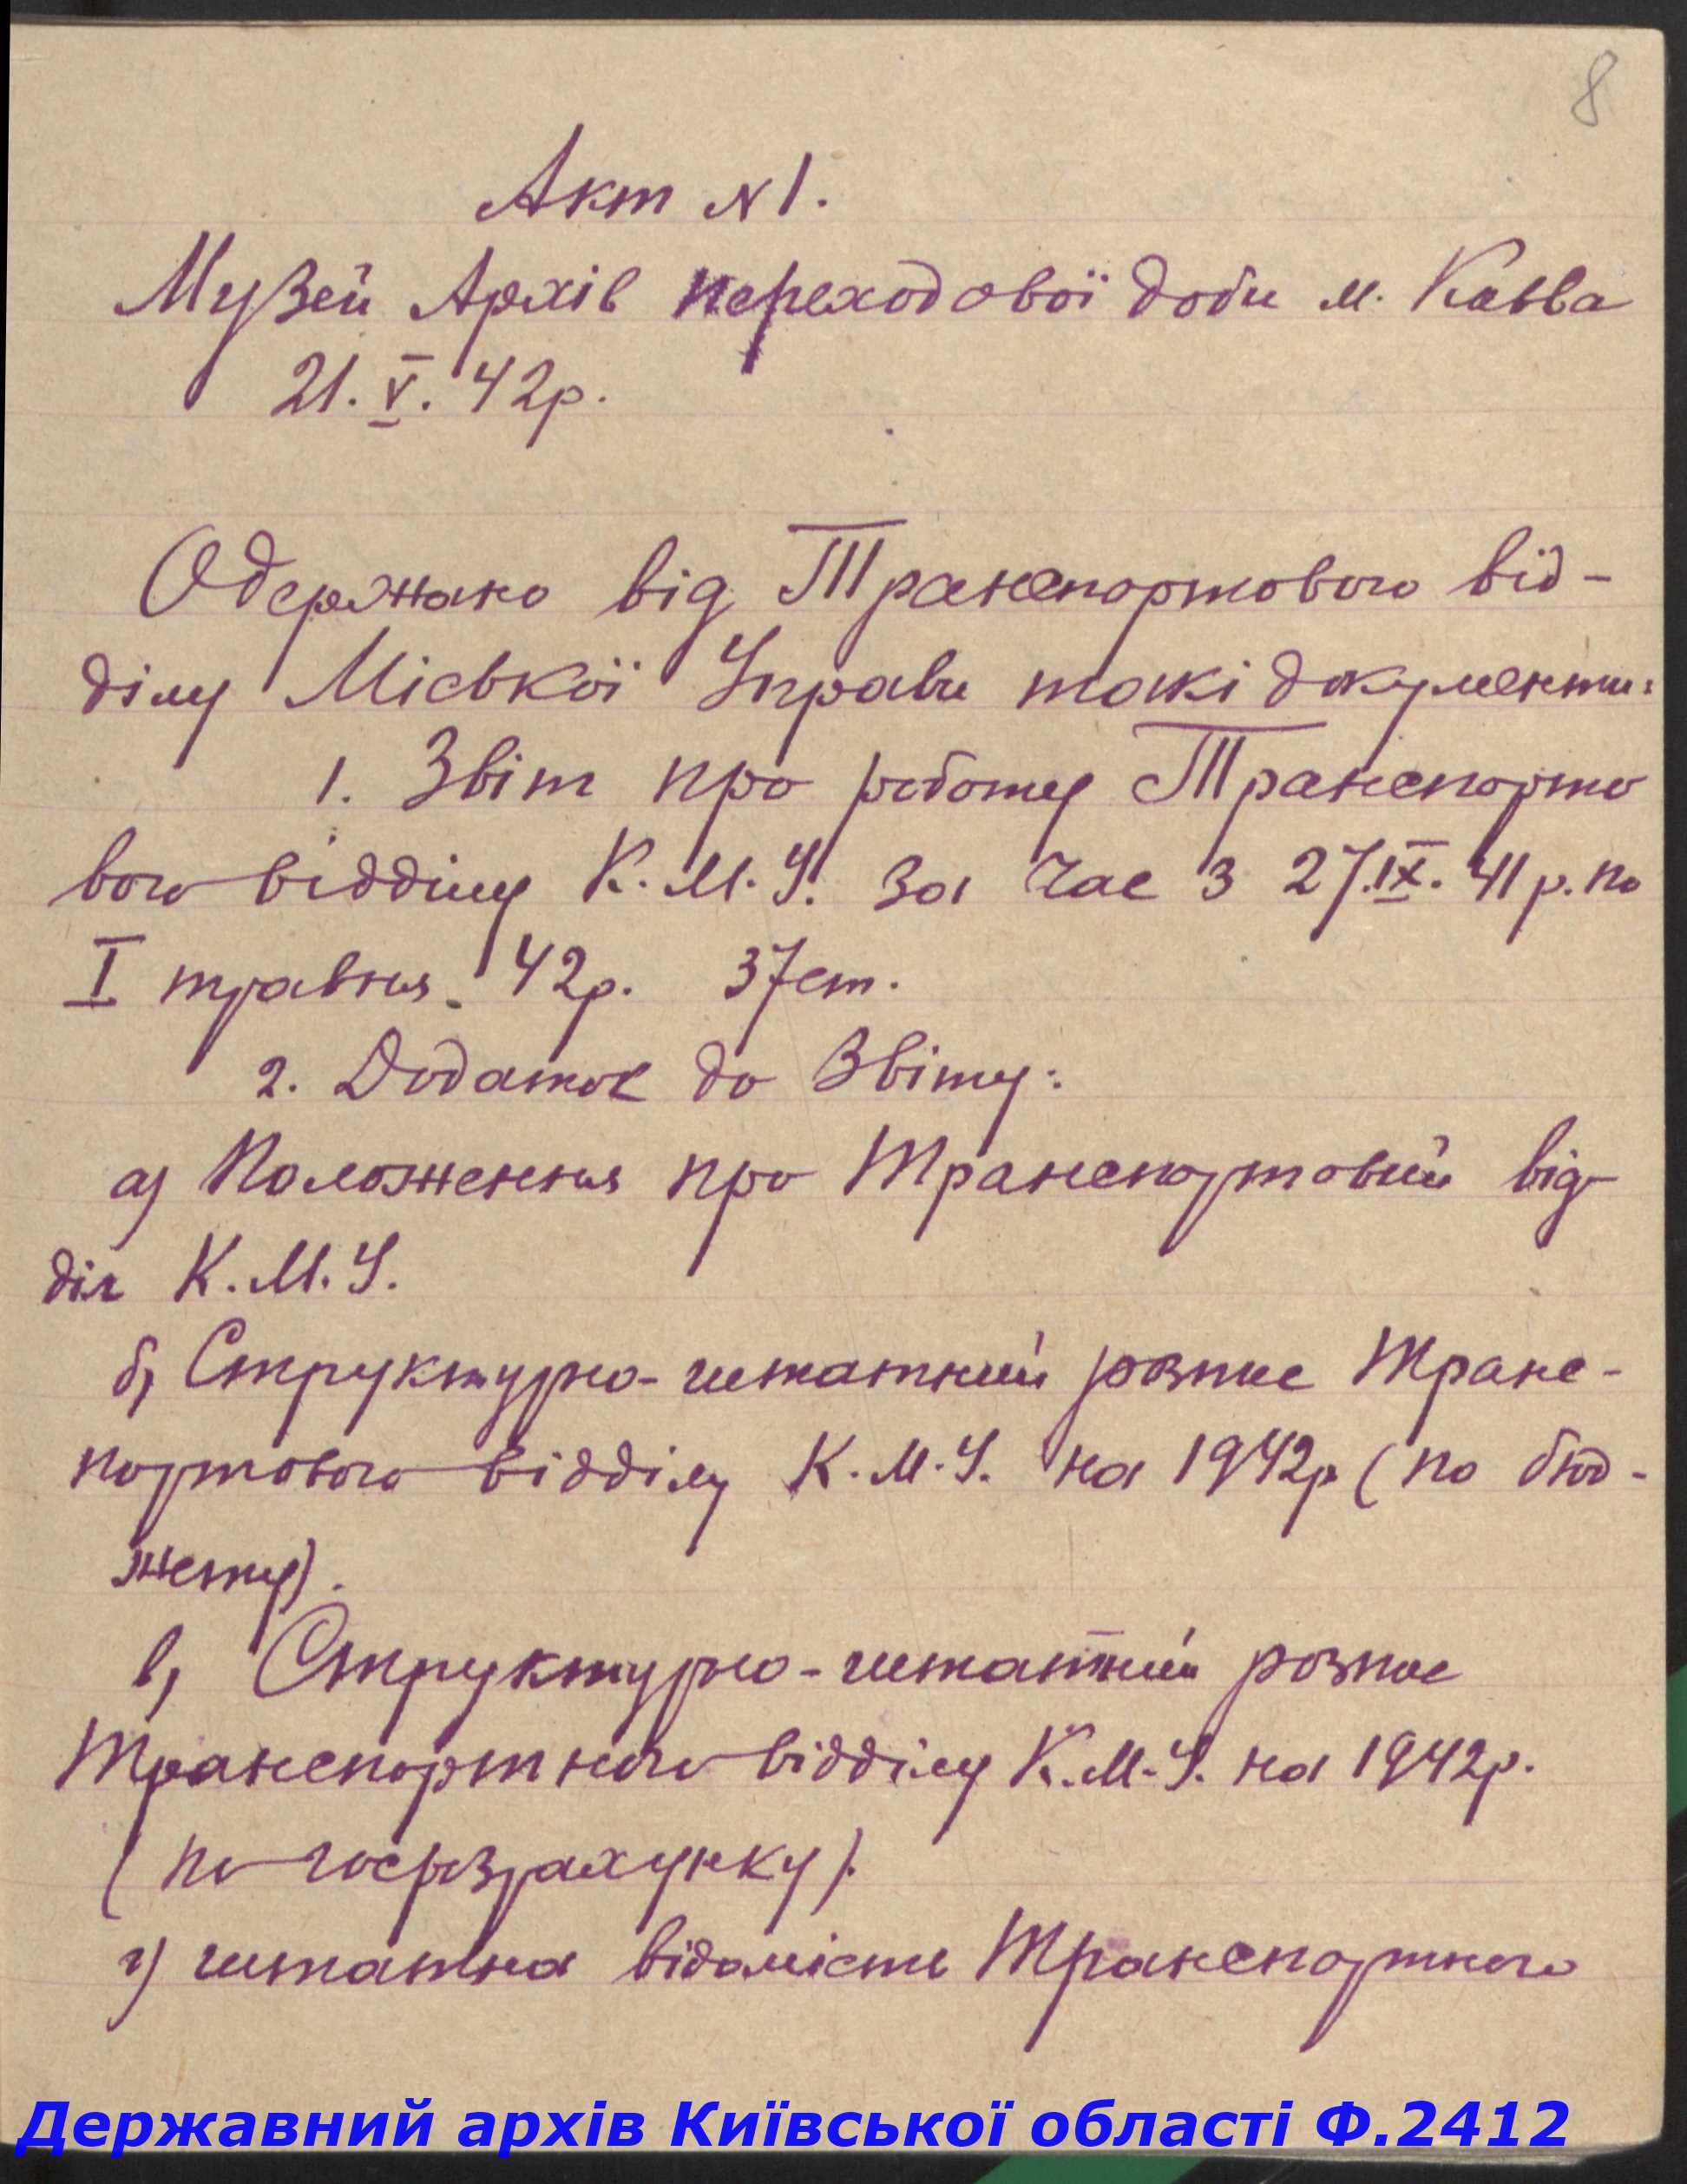 8
Акт № 1.
Музей Архів переходової доби м. Києва
21. V. 42р.
Одержано від Транспортового від-
ділу Міської Управи такі документи:
1. Звіт про роботу Транспорто
вого відділу К.М.У. за час з 27.IX. 41 р. по
I травня 42р. 37 ст.
2. Додаток до Звіту:
а) Положення про Транспортовий від-
діл К.М.У.
б) Структурно-штатний розпис Транс-
портового відділу К.М.У. на 1942р (по бюд-
жету).
в) Структурно-штатний розпис
Транспортного відділу К.М.У. на 1942р.
(по госрозрахунку).
г) штатна відомість Транспортного
Державний архів Київської області Ф.2412